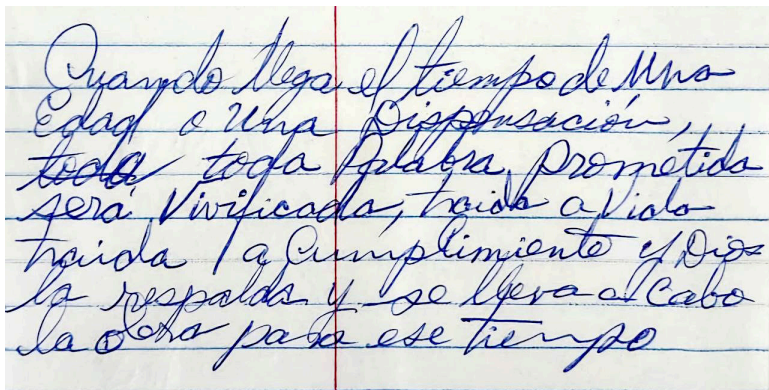 Cuando llega el tiempo de Una
Edad o Una Dispensación,
toda toda Palabra prometida
será Vivificada, traida a Vida
traida a Cumplimiento y Dios
la respalda y se lleva a Cabo
la obra para ese tiempo